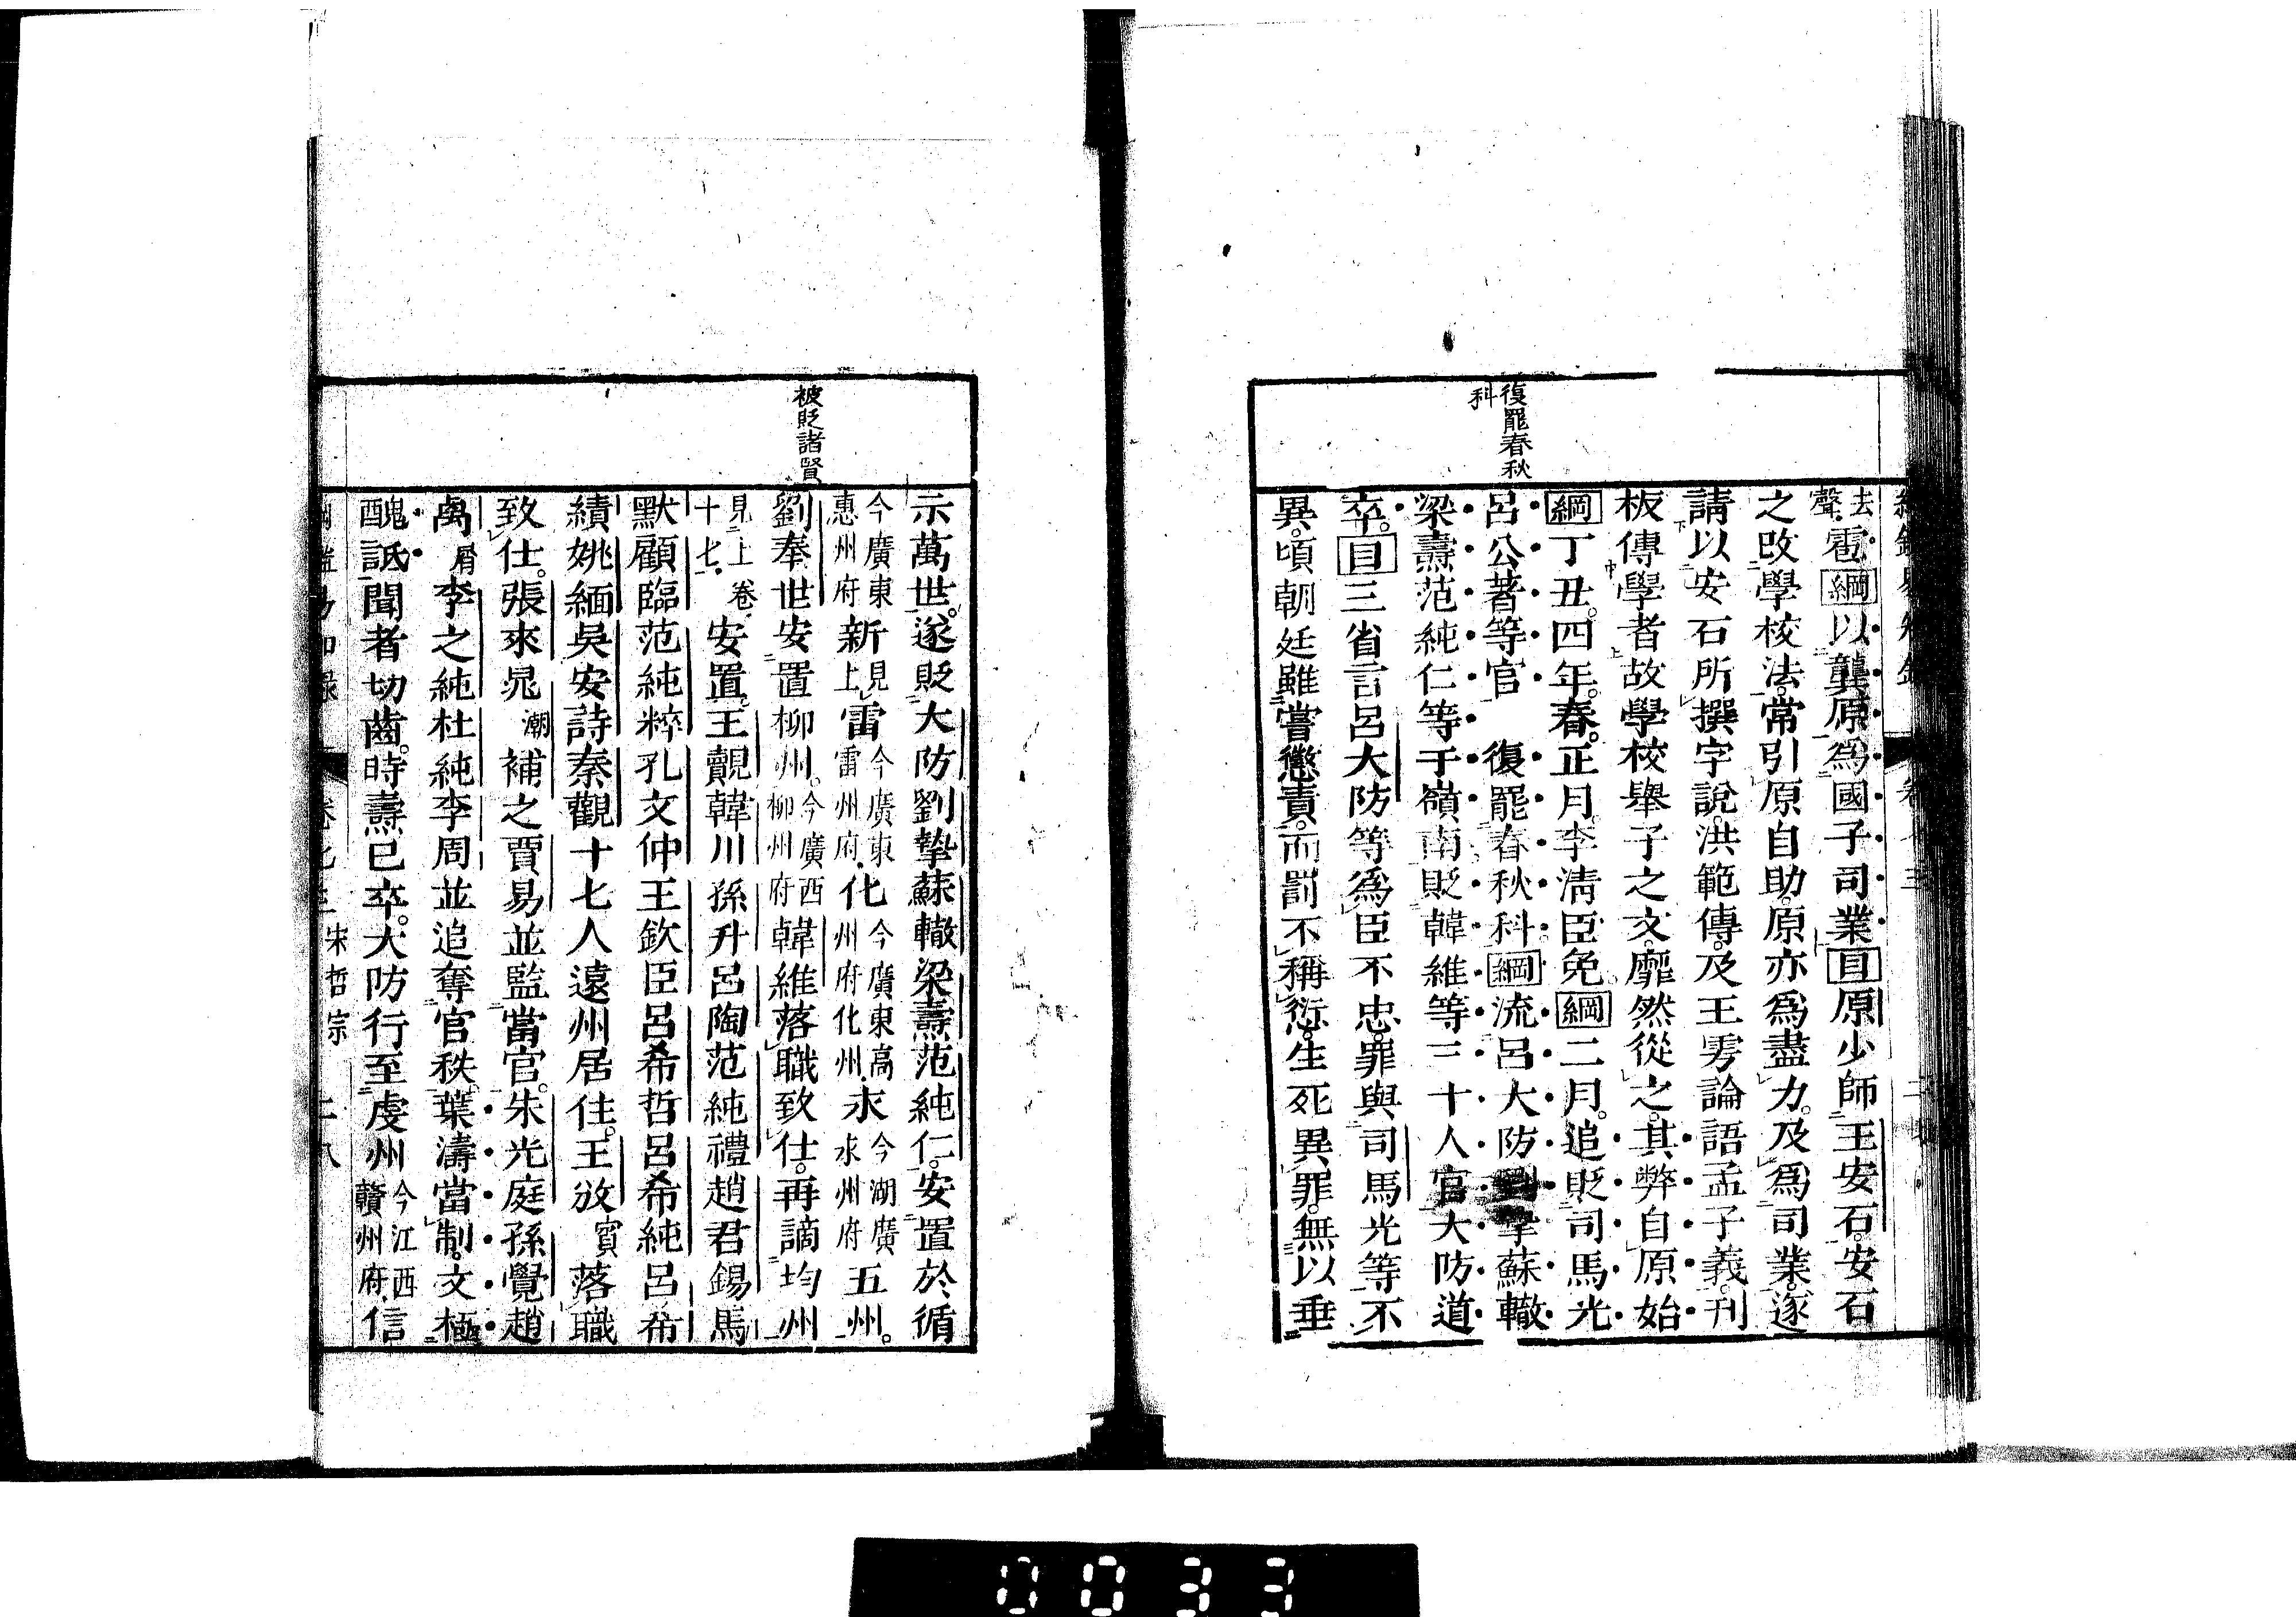 復罷春秋
科
去聲雹綱以龔原爲國子司業目原少師王安石安石
之改學校法常引原自助原亦爲盡力及爲司業遂
請以安石所撰字說洪範傳及王雱論語孟子義刊
板傳學者故學校舉子之文靡然從之其弊自原始
綱丁丑四年春正月李清臣免綱二月追貶司馬光
呂公著等官 復罷春秋科綱流呂大防劉摯蘇轍
梁燾范純仁等于嶺南貶韓維等三十人官大防道
卒目三省言呂大防等爲臣不忠罪與司馬光等不
異頃朝廷雖嘗懲責而罰不稱愆生死異罪無以垂
被貶諸賢
示萬世遂貶大防劉摯蘇轍梁燾范純仁安置於循
今廣東惠州府新見上雷今廣東雷州府化今廣東高州府化州永今湖廣永州府五州
劉奉世安置柳州今廣西柳州府韓維落職致仕再謫均州
見上卷十七安置王覿韓川孫升呂陶范純禮趙君錫馬
默顧臨范純粹孔文仲王欽臣呂希哲呂希純呂希
績姚緬吳安詩秦觀十七人遠州居住王攽賓落職
致仕張來晁潮補之賈易並監當官朱光庭孫覺趙
禼屑李之純杜純李周並追奪官秩葉濤當制文極
醜詆聞者切齒時燾已卒大防行至虔州今江西贛州府信
宋哲宗
0033